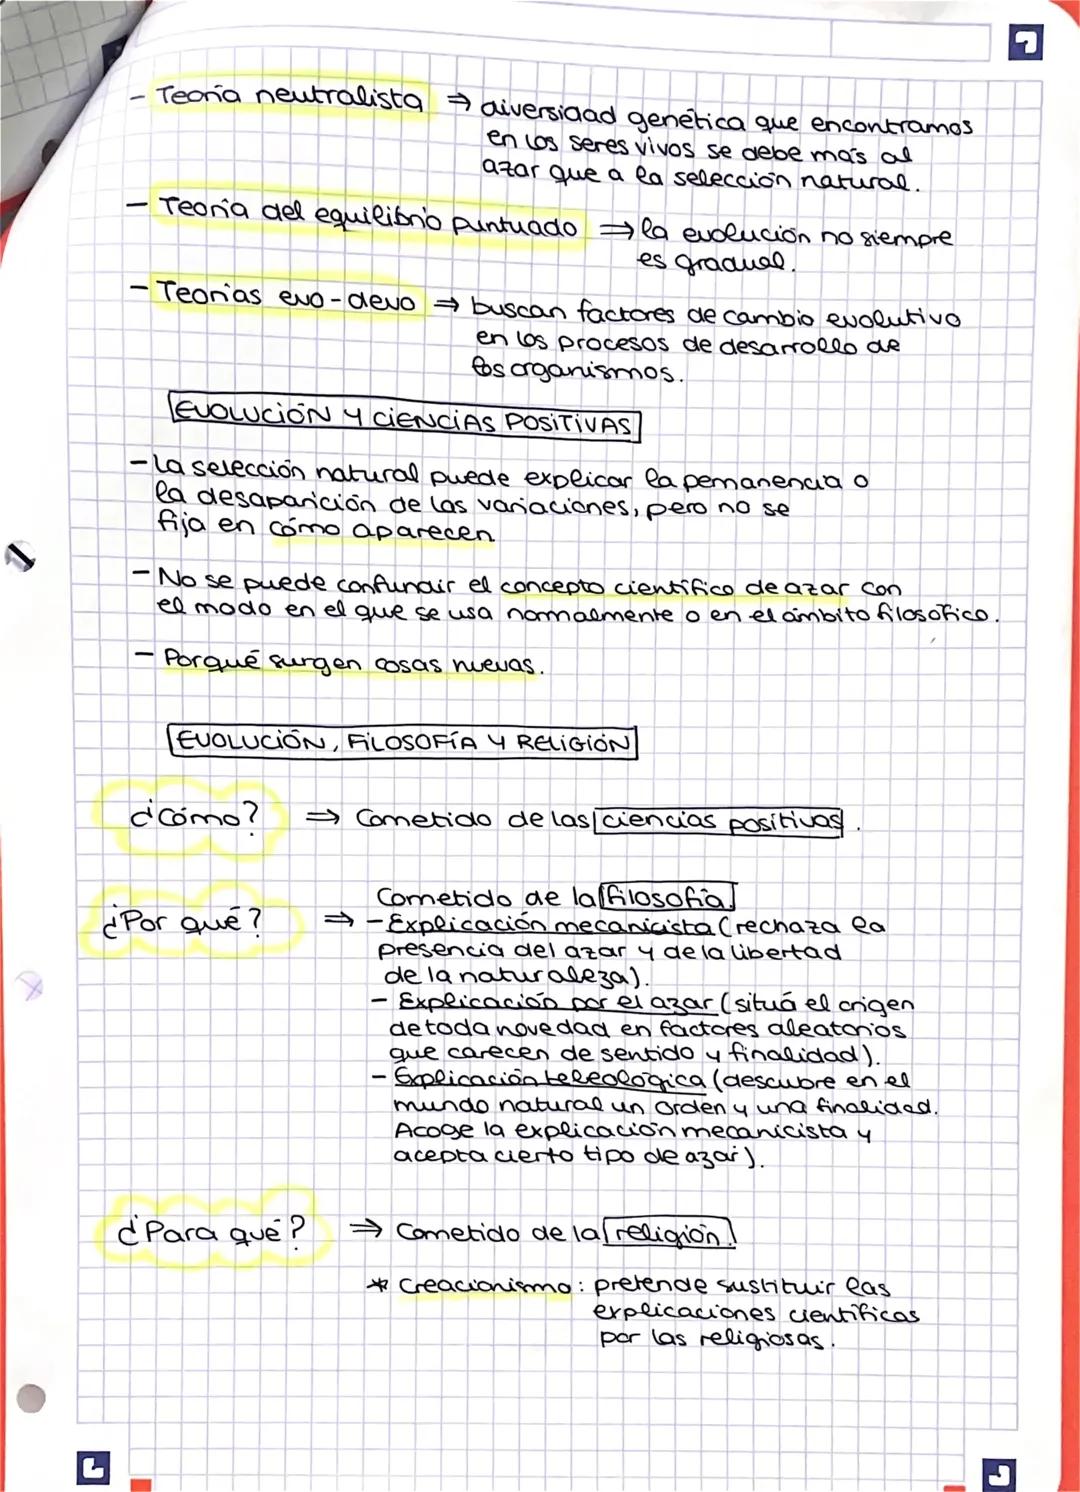 - Teoría neutralista ⇒ diversidad genética que encontramos
en los seres vivos se debe más al
azar que a la selección natural.
- Teoría del equilibrio puntuado ⇒ la evolución no siempre
es gradual.
- Teorías evo-devo ⇒ buscan factores de cambio evolutivo
en los procesos de desarrollo de
los organismos.
EVOLUCIÓN Y CIENCIAS POSITIVAS
- La selección natural puede explicar la pemanencia o
la desaparición de las variaciones, pero no se
fija en cómo aparecen
- No se puede confundir el concepto científico de azar con
el modo en el que se usa normalmente o en el ámbito filosófico.
- Porqué surgen cosas nuevas.
EVOLUCIÓN, FILOSOFÍA Y RELIGIÓN
¿Cómo? ⇒ Cometido de las ciencias positivas.
Cometido de la filosofía
¿Por qué? ⇒ - Explicación mecanicista (rechaza la
presencia del azar y de la libertad
de la naturaleza).
- Explicación por el azar (situá el origen
de toda novedad en factores aleatorios
que carecen de sentido y finalidad).
- Explicación teleológica (descubre en el
mundo natural un orden y una finalidad.
Acoge la explicación mecanicista y
acepta cierto tipo de azar).
¿Para qué? ⇒ Cometido de la religión.
* Creacionismo: pretende sustituir las
explicaciones científicas
por las religiosas.